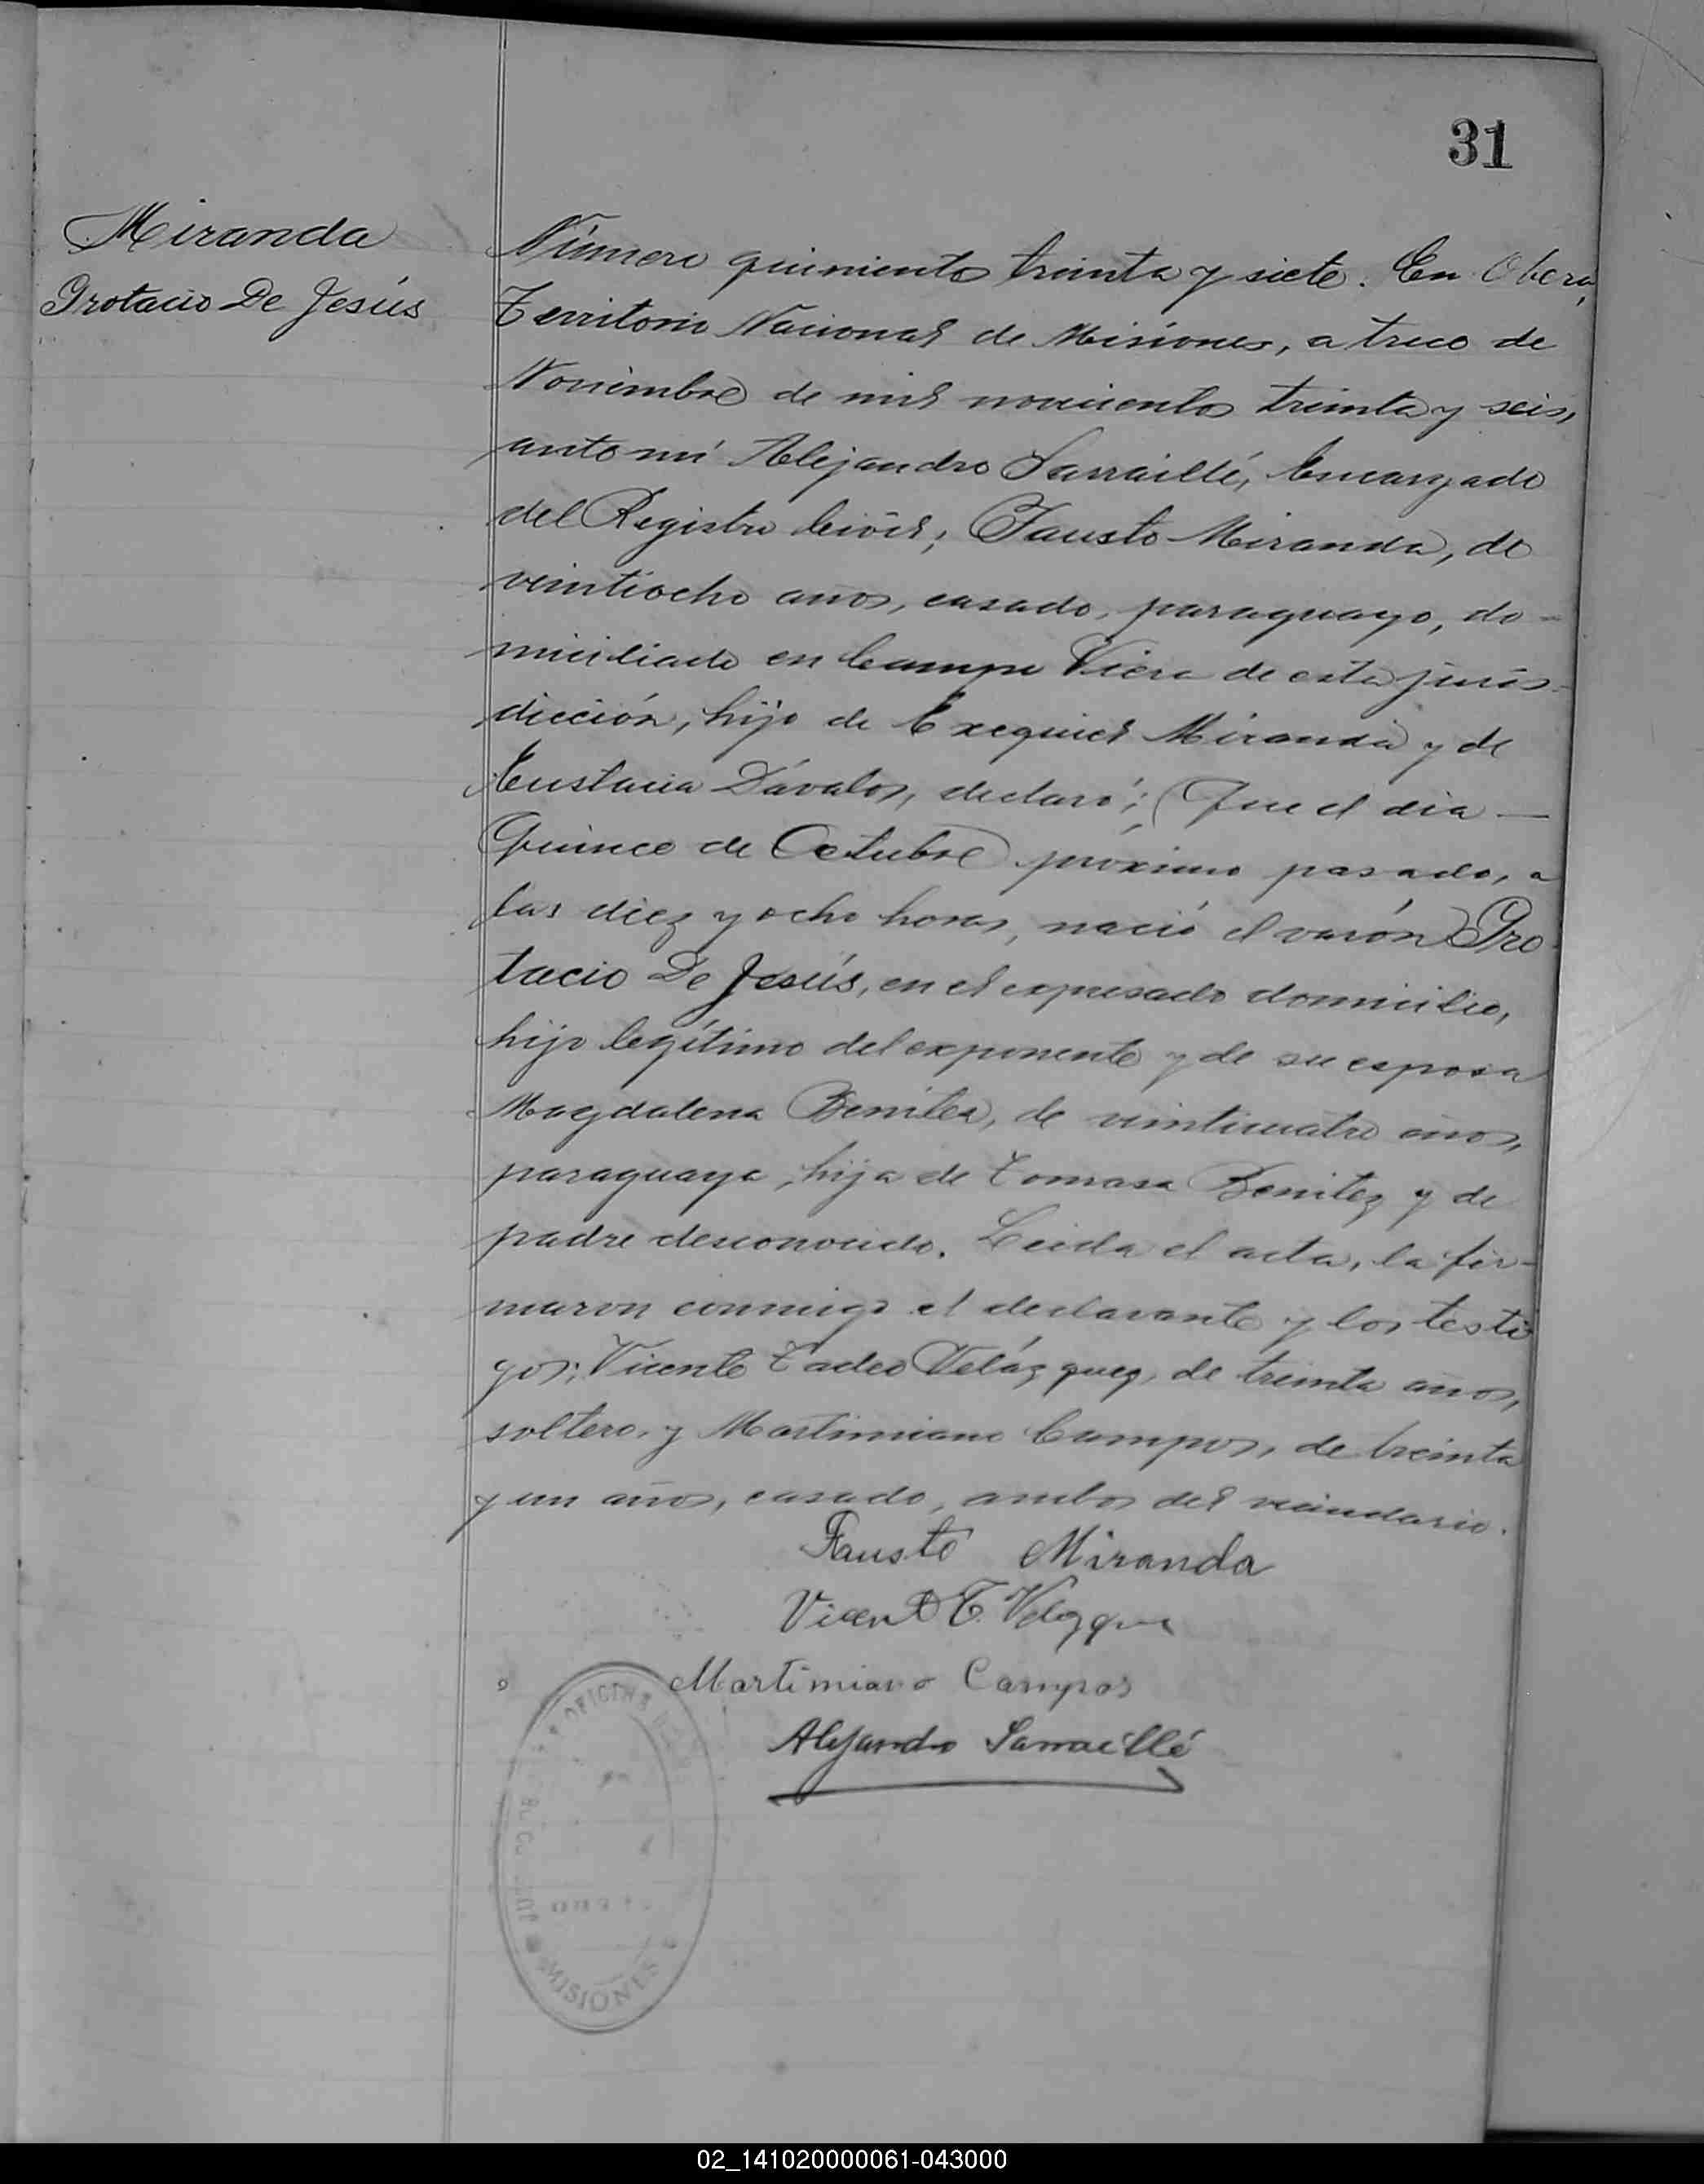 31
Miranda
Protacio De Jesús
Número quinientos treinta y siete. En Oberá,
Territorio Nacional de Misiones, a trece de
Noviembre de mil novecientos treinta y seis,
ante mí Alejandro Sarraillé, Encargado
del Registro Civil; Fausto Miranda, de
veintiocho años, casado, paraguayo, do-
miciliado en Campo Viera de esta juris-
dicción, hijo de Exequiel Miranda y de
Eustacia Dávalos, declaró; Que el dia —
Quince de Octubre próximo pasado, a
las diez y ocho horas, nació el varón Pro-
tacio De Jesús, en el expresado domicilio,
hijo legítimo del exponente y de su esposa
Magdalena Benitez, de veinticuatro años,
paraguaya, hija de Tomasa Benitez y de
padre desconocido. Leida el acta, la fir-
maron conmigo el declarante y los testi-
gos; Vicente Tadeo Velázquez, de treinta años,
soltero, y Martimiano Campos, de treinta
y un años, casado, ambos del vecindario.
Fausto Miranda
Vicente T. Velazquez
Martimiano Campos
Alejandro Sarraillé
OFICINA
MISIONES
02_141020000061-043000